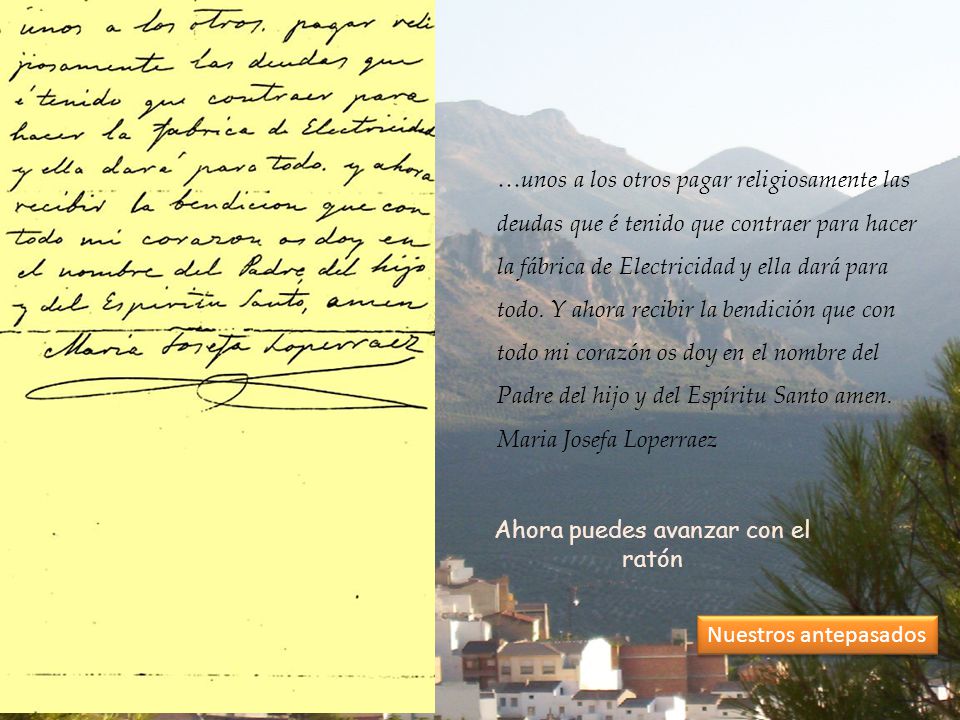 únos a los otros. pagar reli
jiosamente las deudas que
é tenido que contraer para
hacer la fabrica de Electricidad
y ella dará para todo. y ahora
recibir la bendicion que con
todo mi corazon os doy en
el nombre del Padre del hijo
y del Espiritu Santo, amen
Maria Josefa Loperraez
…unos a los otros pagar religiosamente las
deudas que é tenido que contraer para hacer
la fábrica de Electricidad y ella dará para
todo. Y ahora recibir la bendición que con
todo mi corazón os doy en el nombre del
Padre del hijo y del Espíritu Santo amen.
Maria Josefa Loperraez
Ahora puedes avanzar con el
ratón
Nuestros antepasados